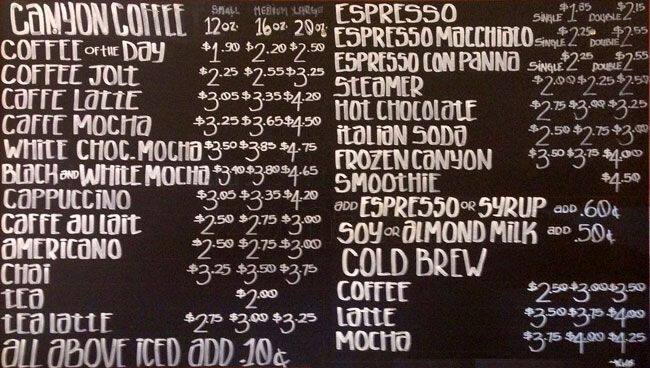 CANYON COFFEE SMALL 12oz. MEDIUM 16oz. LARGE 20oz.
COFFEE OF THE DAY $1.90 $2.20 $2.50
COFFEE JOLT $2.25 $2.55 $3.25
CAFFE LATTE $3.05 $3.35 $4.20
CAFFE MOCHA $3.25 $3.65 $4.50
WHITE CHOC. MOCHA $3.50 $3.85 $4.75
BLACK AND WHITE MOCHA $3.40 $3.80 $4.65
CAPPUCCINO $3.05 $3.35 $4.20
CAFFE AU LAIT $2.50 $2.75 $3.00
AMERICANO $2.50 $2.75 $3.00
CHAI $3.25 $3.50 $3.75
TEA $2.00
TEA LATTE $2.75 $3.00 $3.25
ALL ABOVE ICED ADD .10¢
ESPRESSO SINGLE $1.85 DOUBLE $2.15
ESPRESSO MACCHIATO SINGLE $2.25 DOUBLE $2.55
ESPRESSO CON PANNA SINGLE $2.25 DOUBLE $2.55
STEAMER $2.00 $2.25 $2.50
HOT CHOCOLATE $2.75 $3.00 $3.25
ITALIAN SODA $2.50 $2.75 $3.00
FROZEN CANYON $3.50 $3.75 $4.00
SMOOTHIE $4.50
ADD ESPRESSO OR SYRUP ADD .60¢
SOY OR ALMOND MILK ADD .50¢
COLD BREW
COFFEE $2.50 $3.00 $3.50
LATTE $3.50 $3.75 $4.00
MOCHA $3.75 $4.00 $4.25